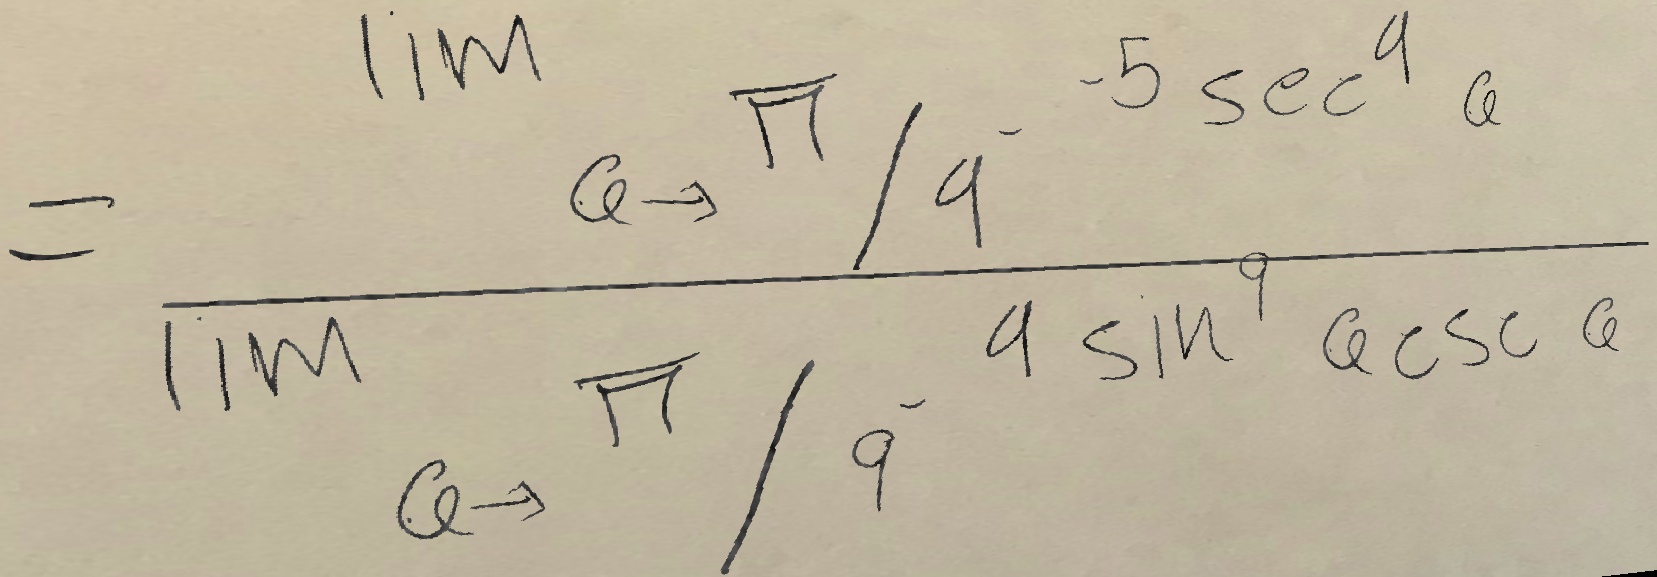 = \frac{\lim_{a \to \pi/9^-} -5 \sec^9 a}{\lim_{a \to \pi/9^-} 9 \sin^9 a \csc a}